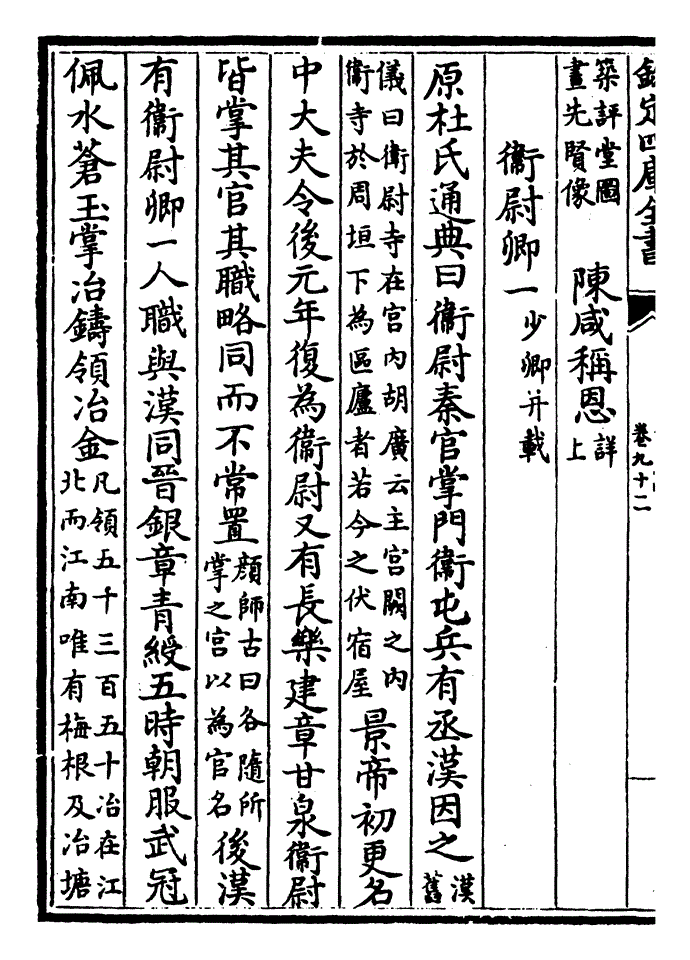 欽定四庫全書
卷九十二
築評堂圖
畫先賢像 陳咸稱恩 詳
上
衞尉卿一 少卿并載
原杜氏通典曰衞尉秦官掌門衞屯兵有丞漢因之 漢
舊
儀曰衞尉寺在宫内胡廣云主宫闕之内
衞寺於周垣下為區廬者若今之伏宿屋 景帝初更名
中大夫令後元年復為衞尉又有長樂建章甘泉衞尉
皆掌其官其職略同而不常置 顔師古曰各隨所
掌之宫以為官名 後漢
有衞尉卿一人職與漢同晉銀章青綬五時朝服武冠
佩水蒼玉掌冶鑄領冶金 凡領五十三百五十冶在江
北而江南唯有梅根及冶塘